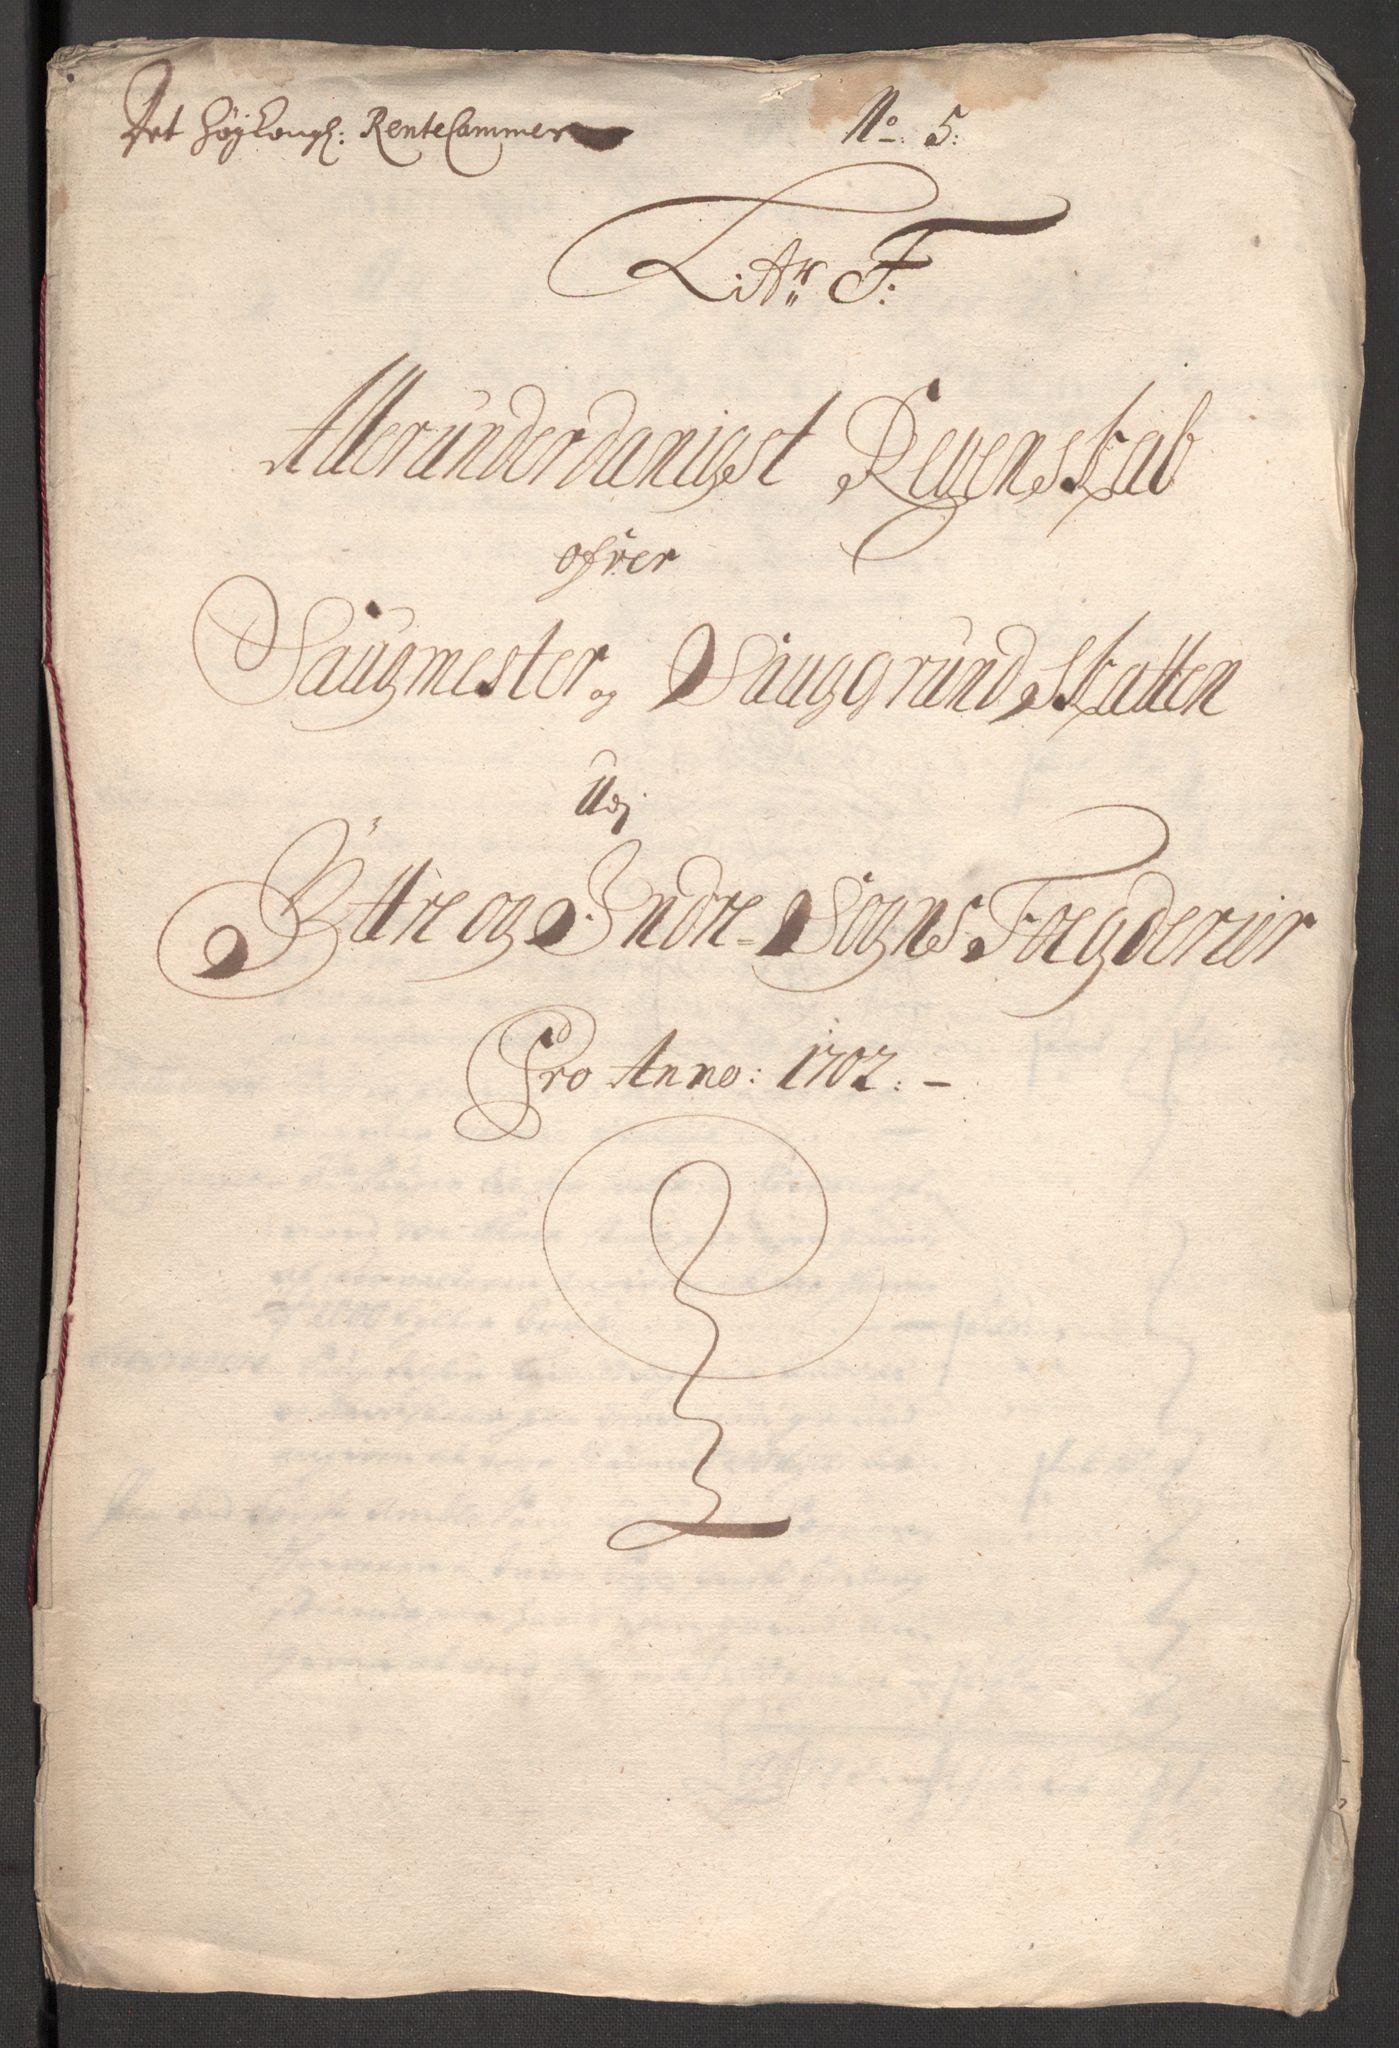 Det Høÿkongl: RenteCammer
No. 5:
LitAr F:
Allerunderdanigst Regenskab
ofver
Saugmester og Sauggrund Skatten
Udj
Yttre og Indre Sogns Foegderier
Pro Anno: 1702. –